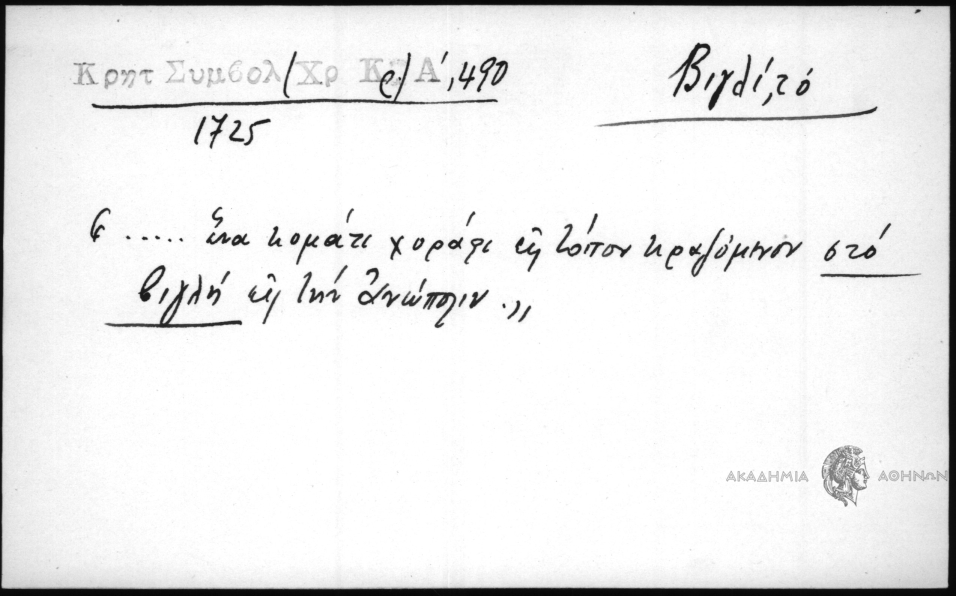 Κρητ Συμβολ (Χρ Κ ρ) Α΄, 490
Βιγλί, τό
1725
“ ..... ἕνα κομάτι χοράφι εἰς τόπον κραζόμενον στό
βιγλή εἰς τήν Ἀνώπολιν . „
ΑΚΑΔΗΜΙΑ ΑΘΗΝΩΝ